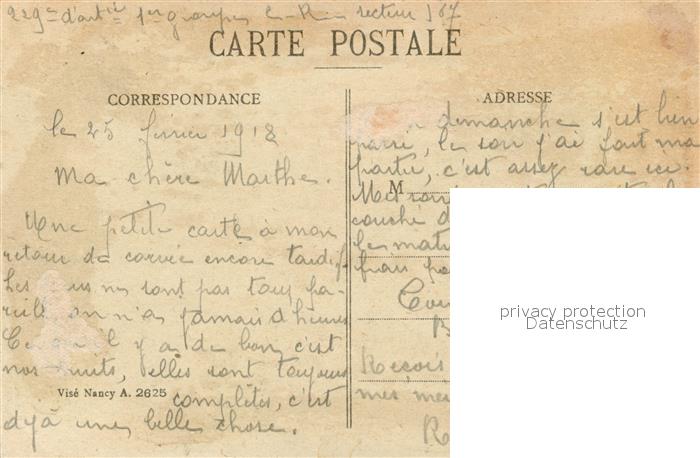 229e d'artie 1er groupe secteur 167
CARTE POSTALE
CORRESPONDANCE
le 25 février 1918
Ma chère Marthe.
Une petite carte à mon
retour de corvée encore tardif
Les ne sont pas tous pa-
reils on n'a jamais d'heures
Ce qu'il y a de bon c'est
nos nuits, elles sont toujours
Visé Nancy A. 2625
complètes, c'est
déjà une belle chose.
ADRESSE
dimanche s'est bien
passé, le soir j'ai fait ma
partie, c'est assez rare ici.
M
couché
le
frais
Reçois
mes
privacy protection
Datenschutz